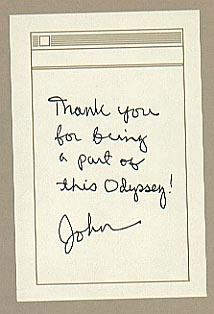 Thank you
for being
a part of
this Odyssey!
John